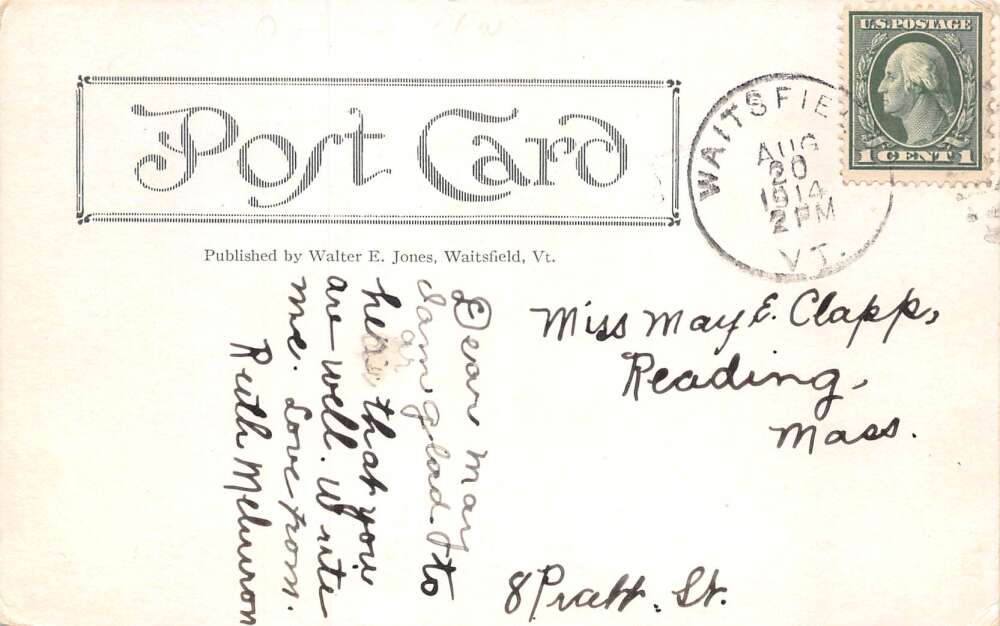 Post Card
U.S. POSTAGE
1 CENT 1
WAITSFIE
AUG
20
1914
2 PM
VT.
Published by Walter E. Jones, Waitsfield, Vt.
Dear May
I am glad to
hear that you
are well. Write
me. Love from.
Ruth Mehuron
Miss May E. Clapp,
Reading,
Mass.
8 Pratt. St.